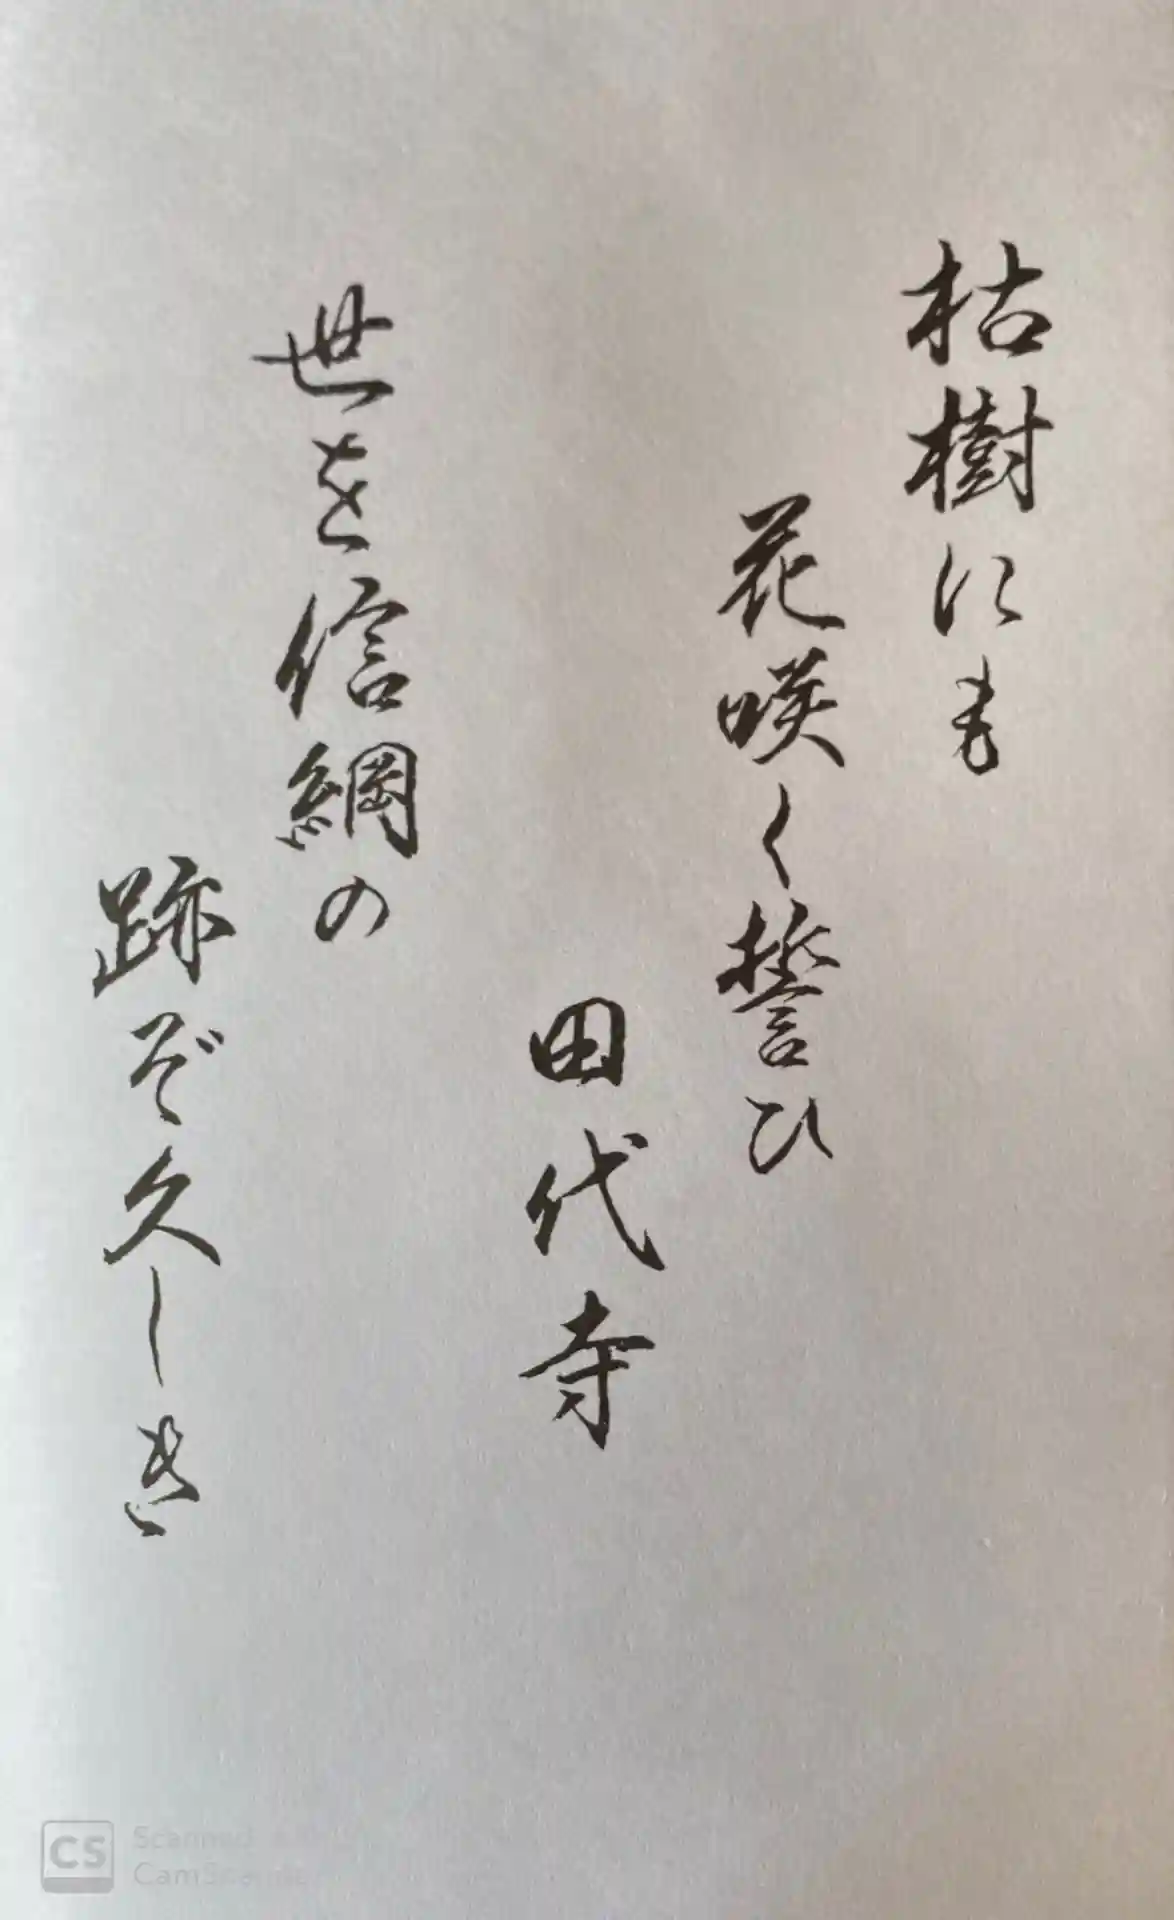 枯樹にも
花咲く誓ひ
田代寺
世を信綱の
跡ぞ久しき
CS
Scanned
CamScanner